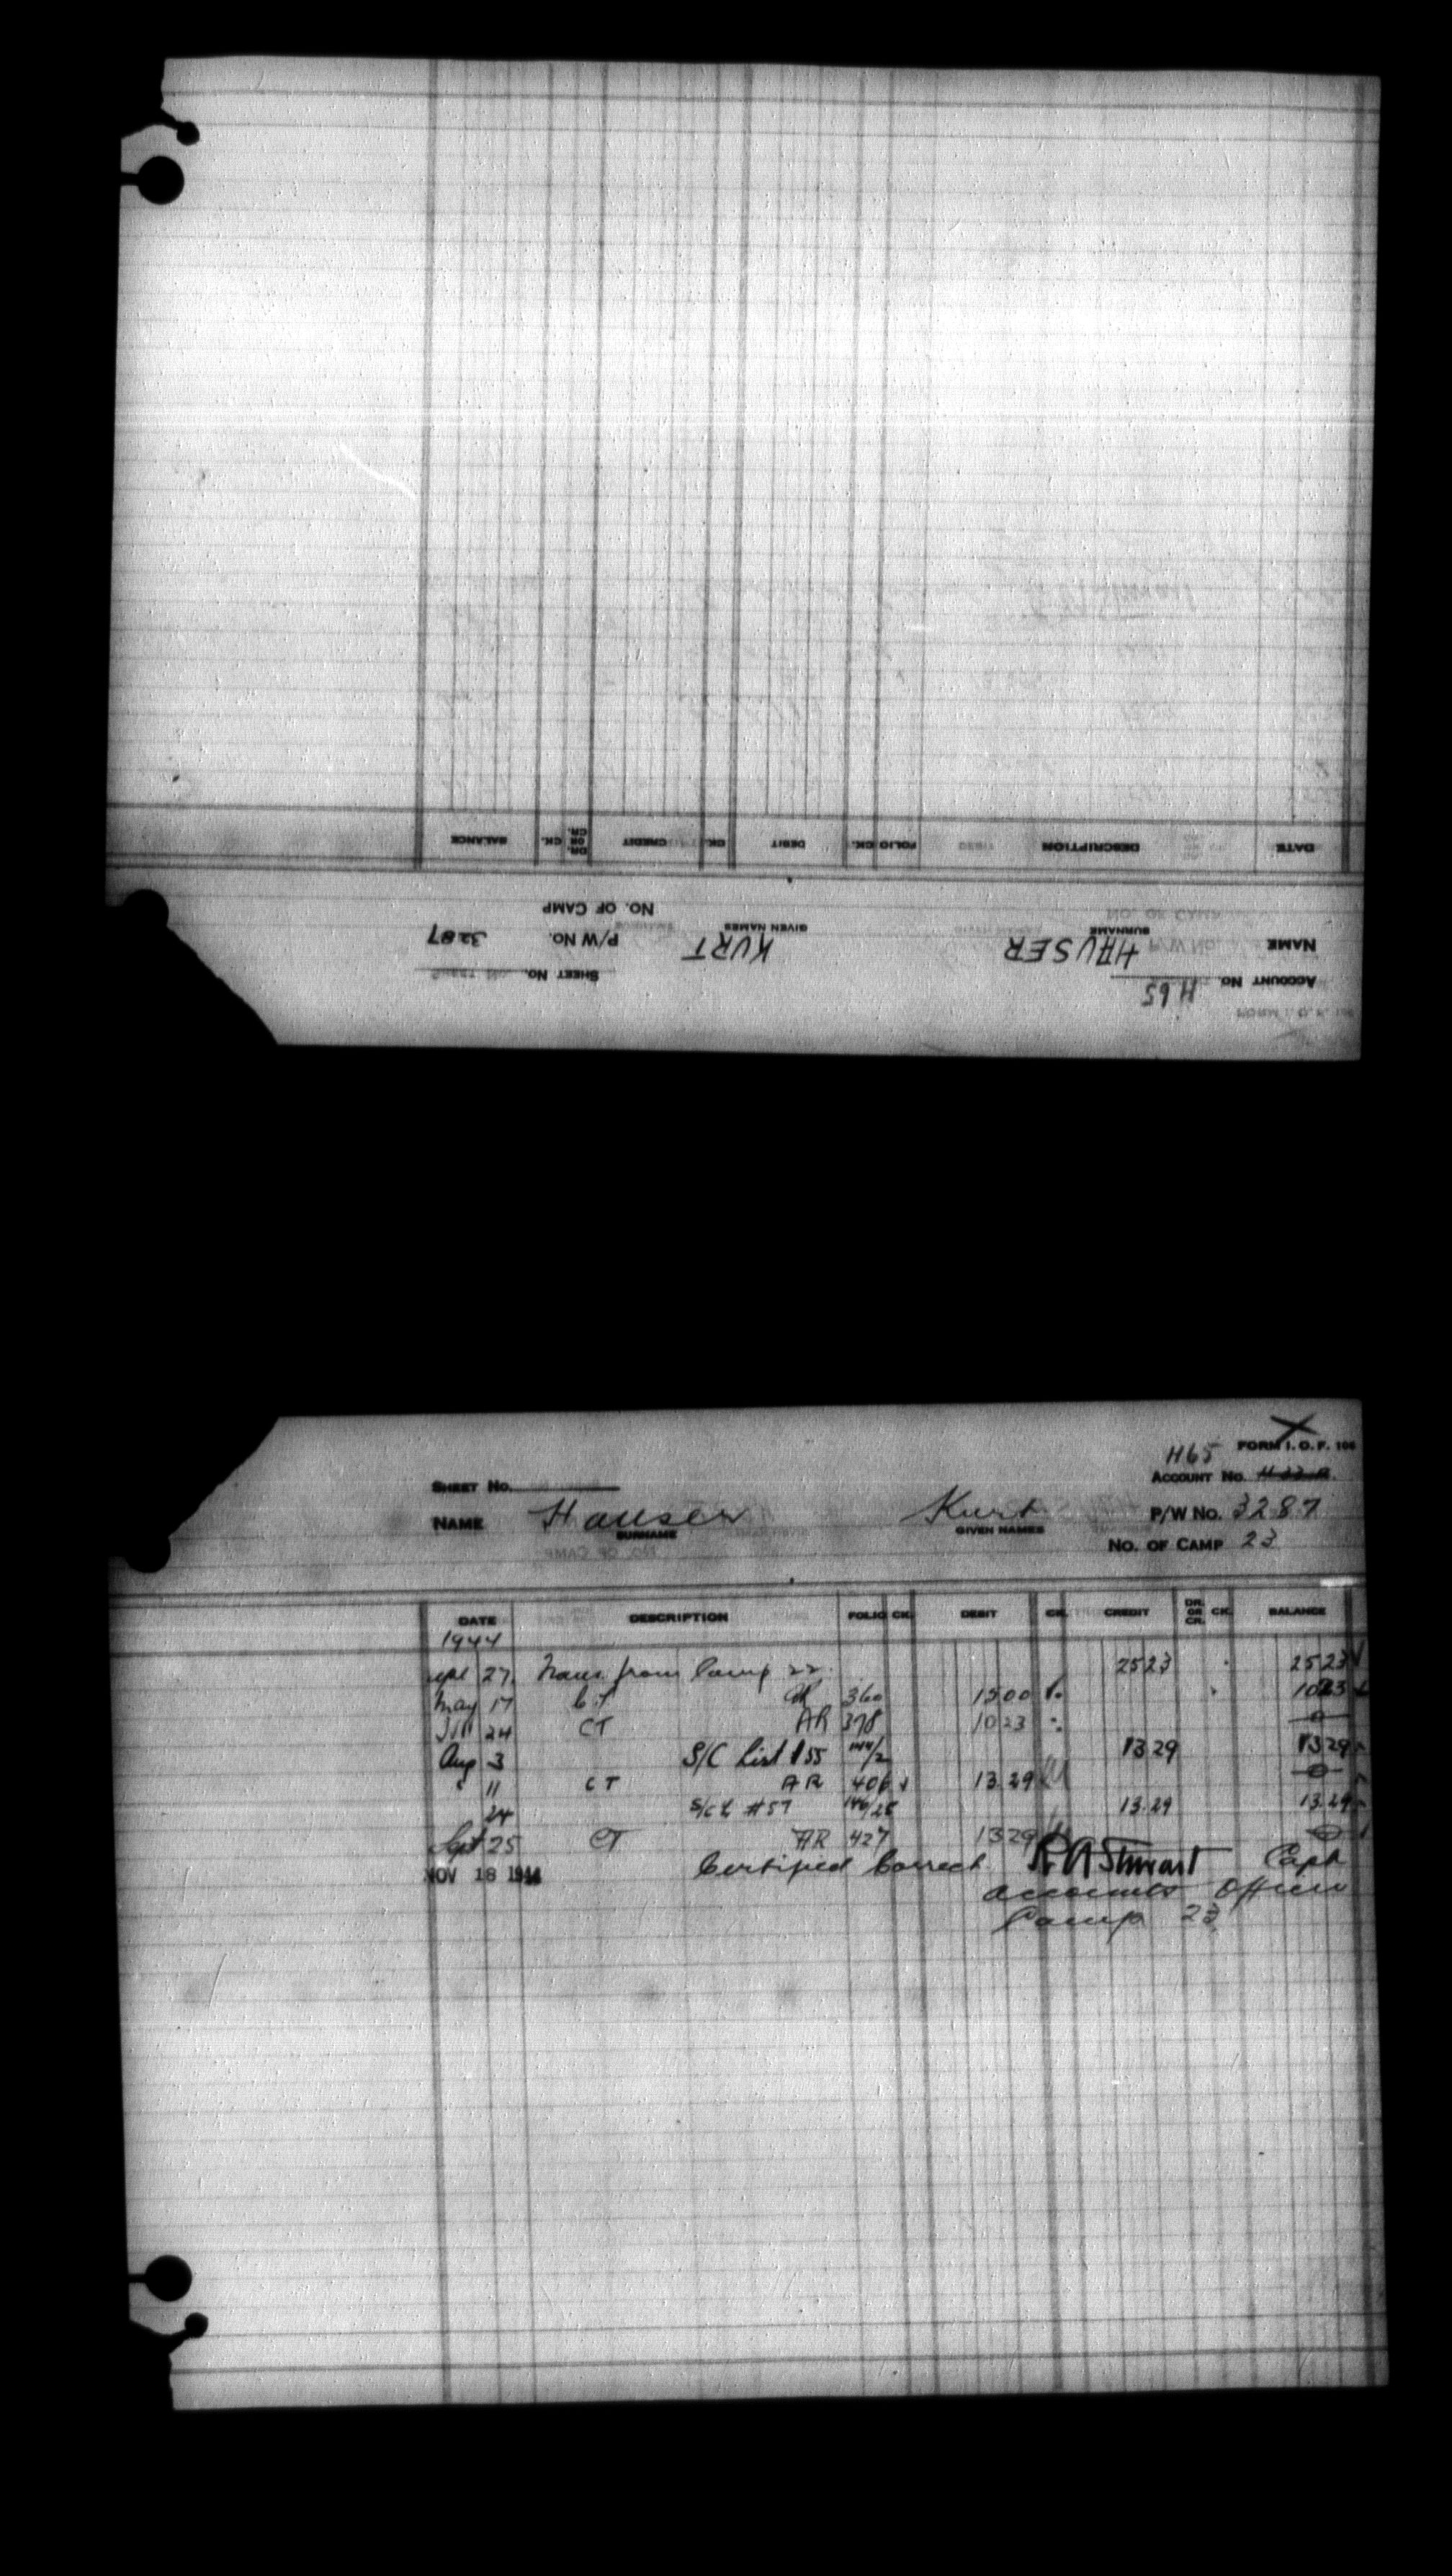 ACCOUNT No. H65
SHEET No.
NAME HAUSER KURT P/W No. 3287
SURNAME GIVEN NAMES
NO. OF CAMP
DATE DESCRIPTION FOLIO CK. DEBIT CK. CREDIT DR. OR CR. CK. BALANCE
FORM I.O.F. 106
H65
SHEET No. ACCOUNT No.
NAME Hauser Kurt P/W No. 3287
SURNAME GIVEN NAMES
NO. OF CAMP 23
DATE DESCRIPTION FOLIO CK. DEBIT CK. CREDIT DR. OR CR. CK. BALANCE
1944
Apl 27 Trans. from Camp 22. 25 23 25 23
May 17 C.T 360 15 00 10 23
24 CT AR 378 10 23 0
Aug 3 S/C List 155 144/2 13 29 13 29
" 11 CT AR 406 13 29 0
24 S/C L #57 146/25 13.29 13.29
Sept 25 CT AR 427 13 29 0
NOV 18 1944 Certified Correct R A Stewart Capt
Accounts Officer
Camp 23